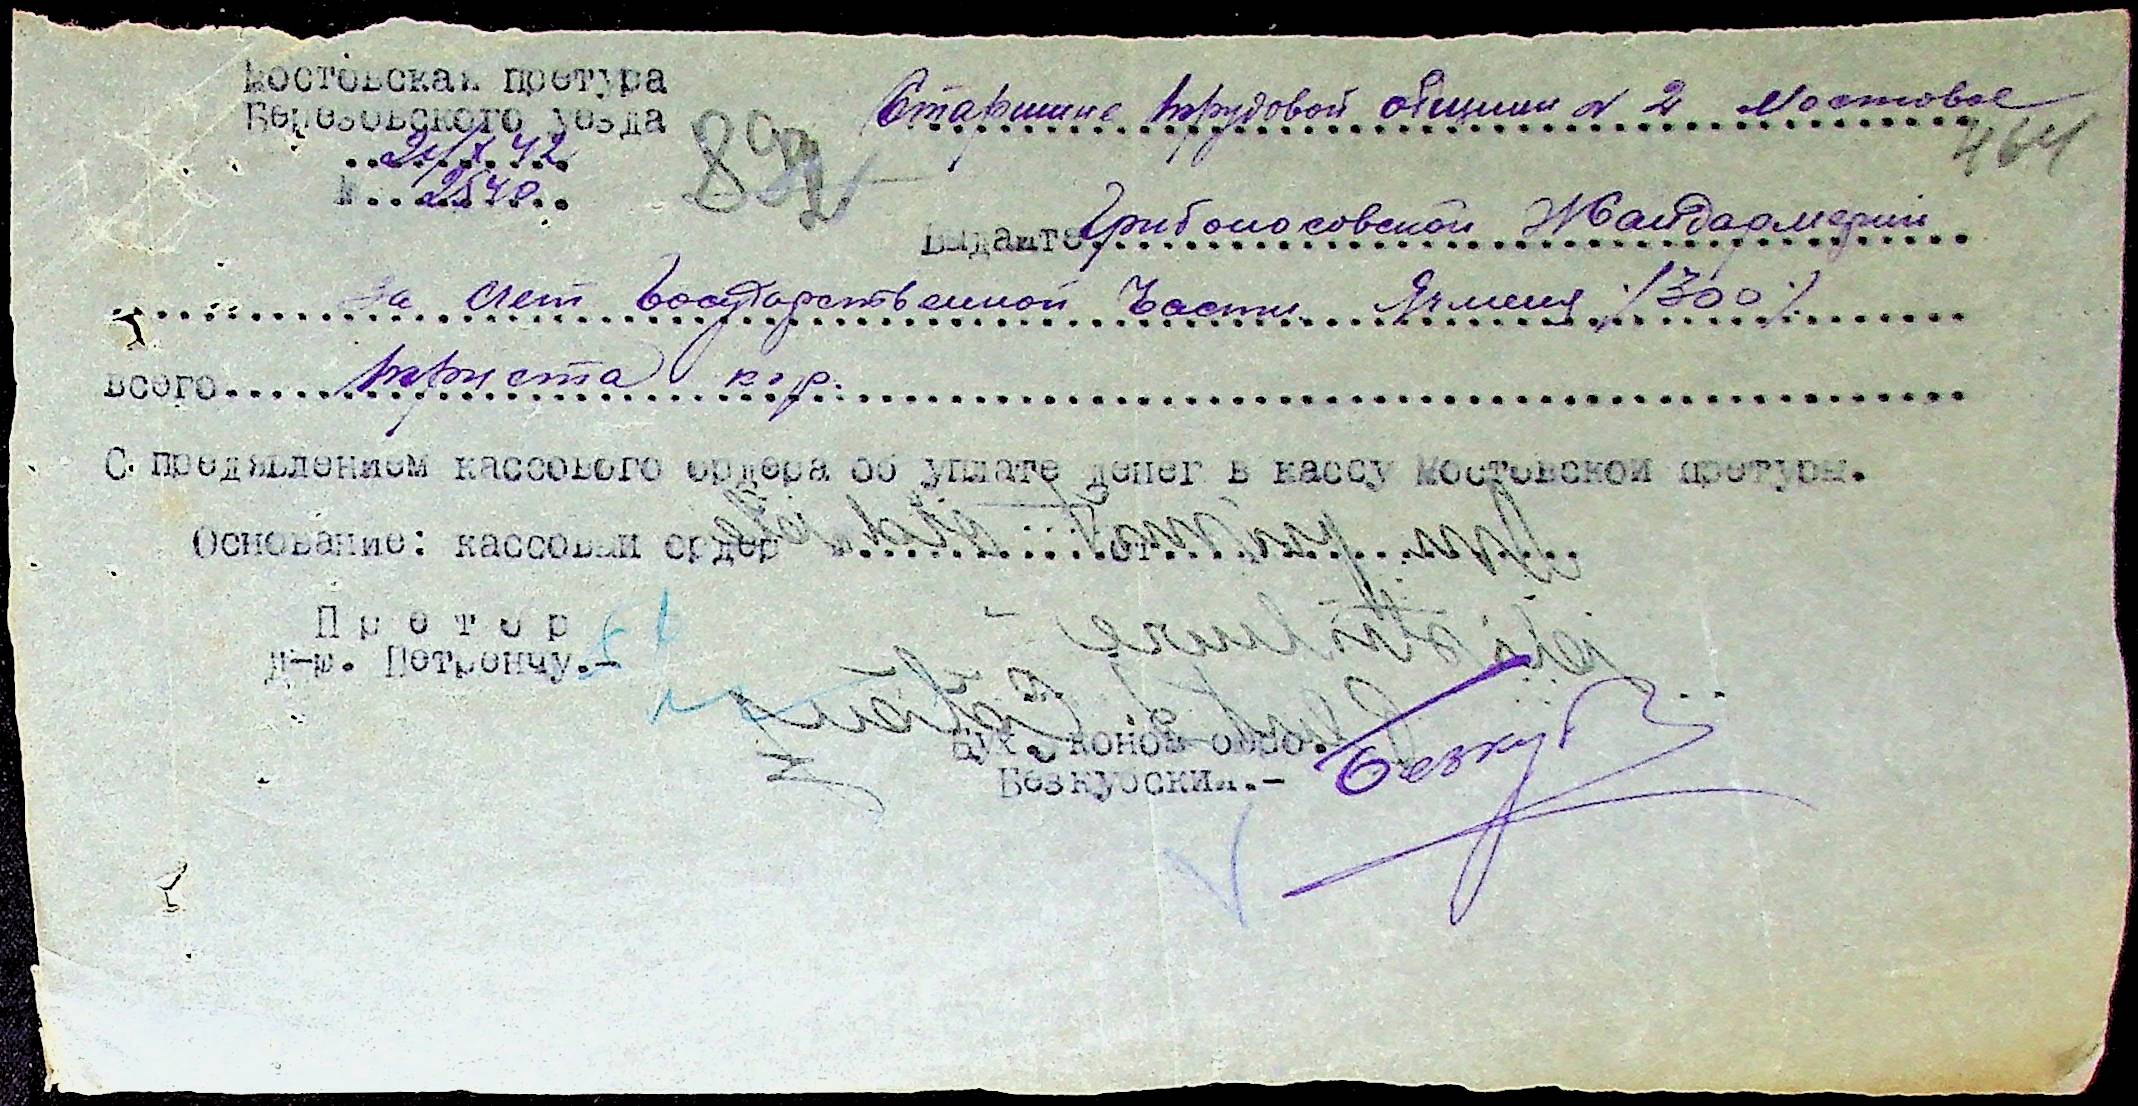 Мостовская претура
Березовского уезда
21/X 42
№ 2540
892
Старшине трудовой общины N 2 Мостовое
464
Выдайте Грибоносовской Жандармерии
За счет Государственной Части Ячменя /300/
Всего триста кгр.
С предявлением кассового ордера об уплате денег в кассу Мостовской претуры.
Основание: кассовый ордер от
Претор
д-ш. Петренчу.-
Бух. Эконом обоо.
Безкубский.-
Безкуб